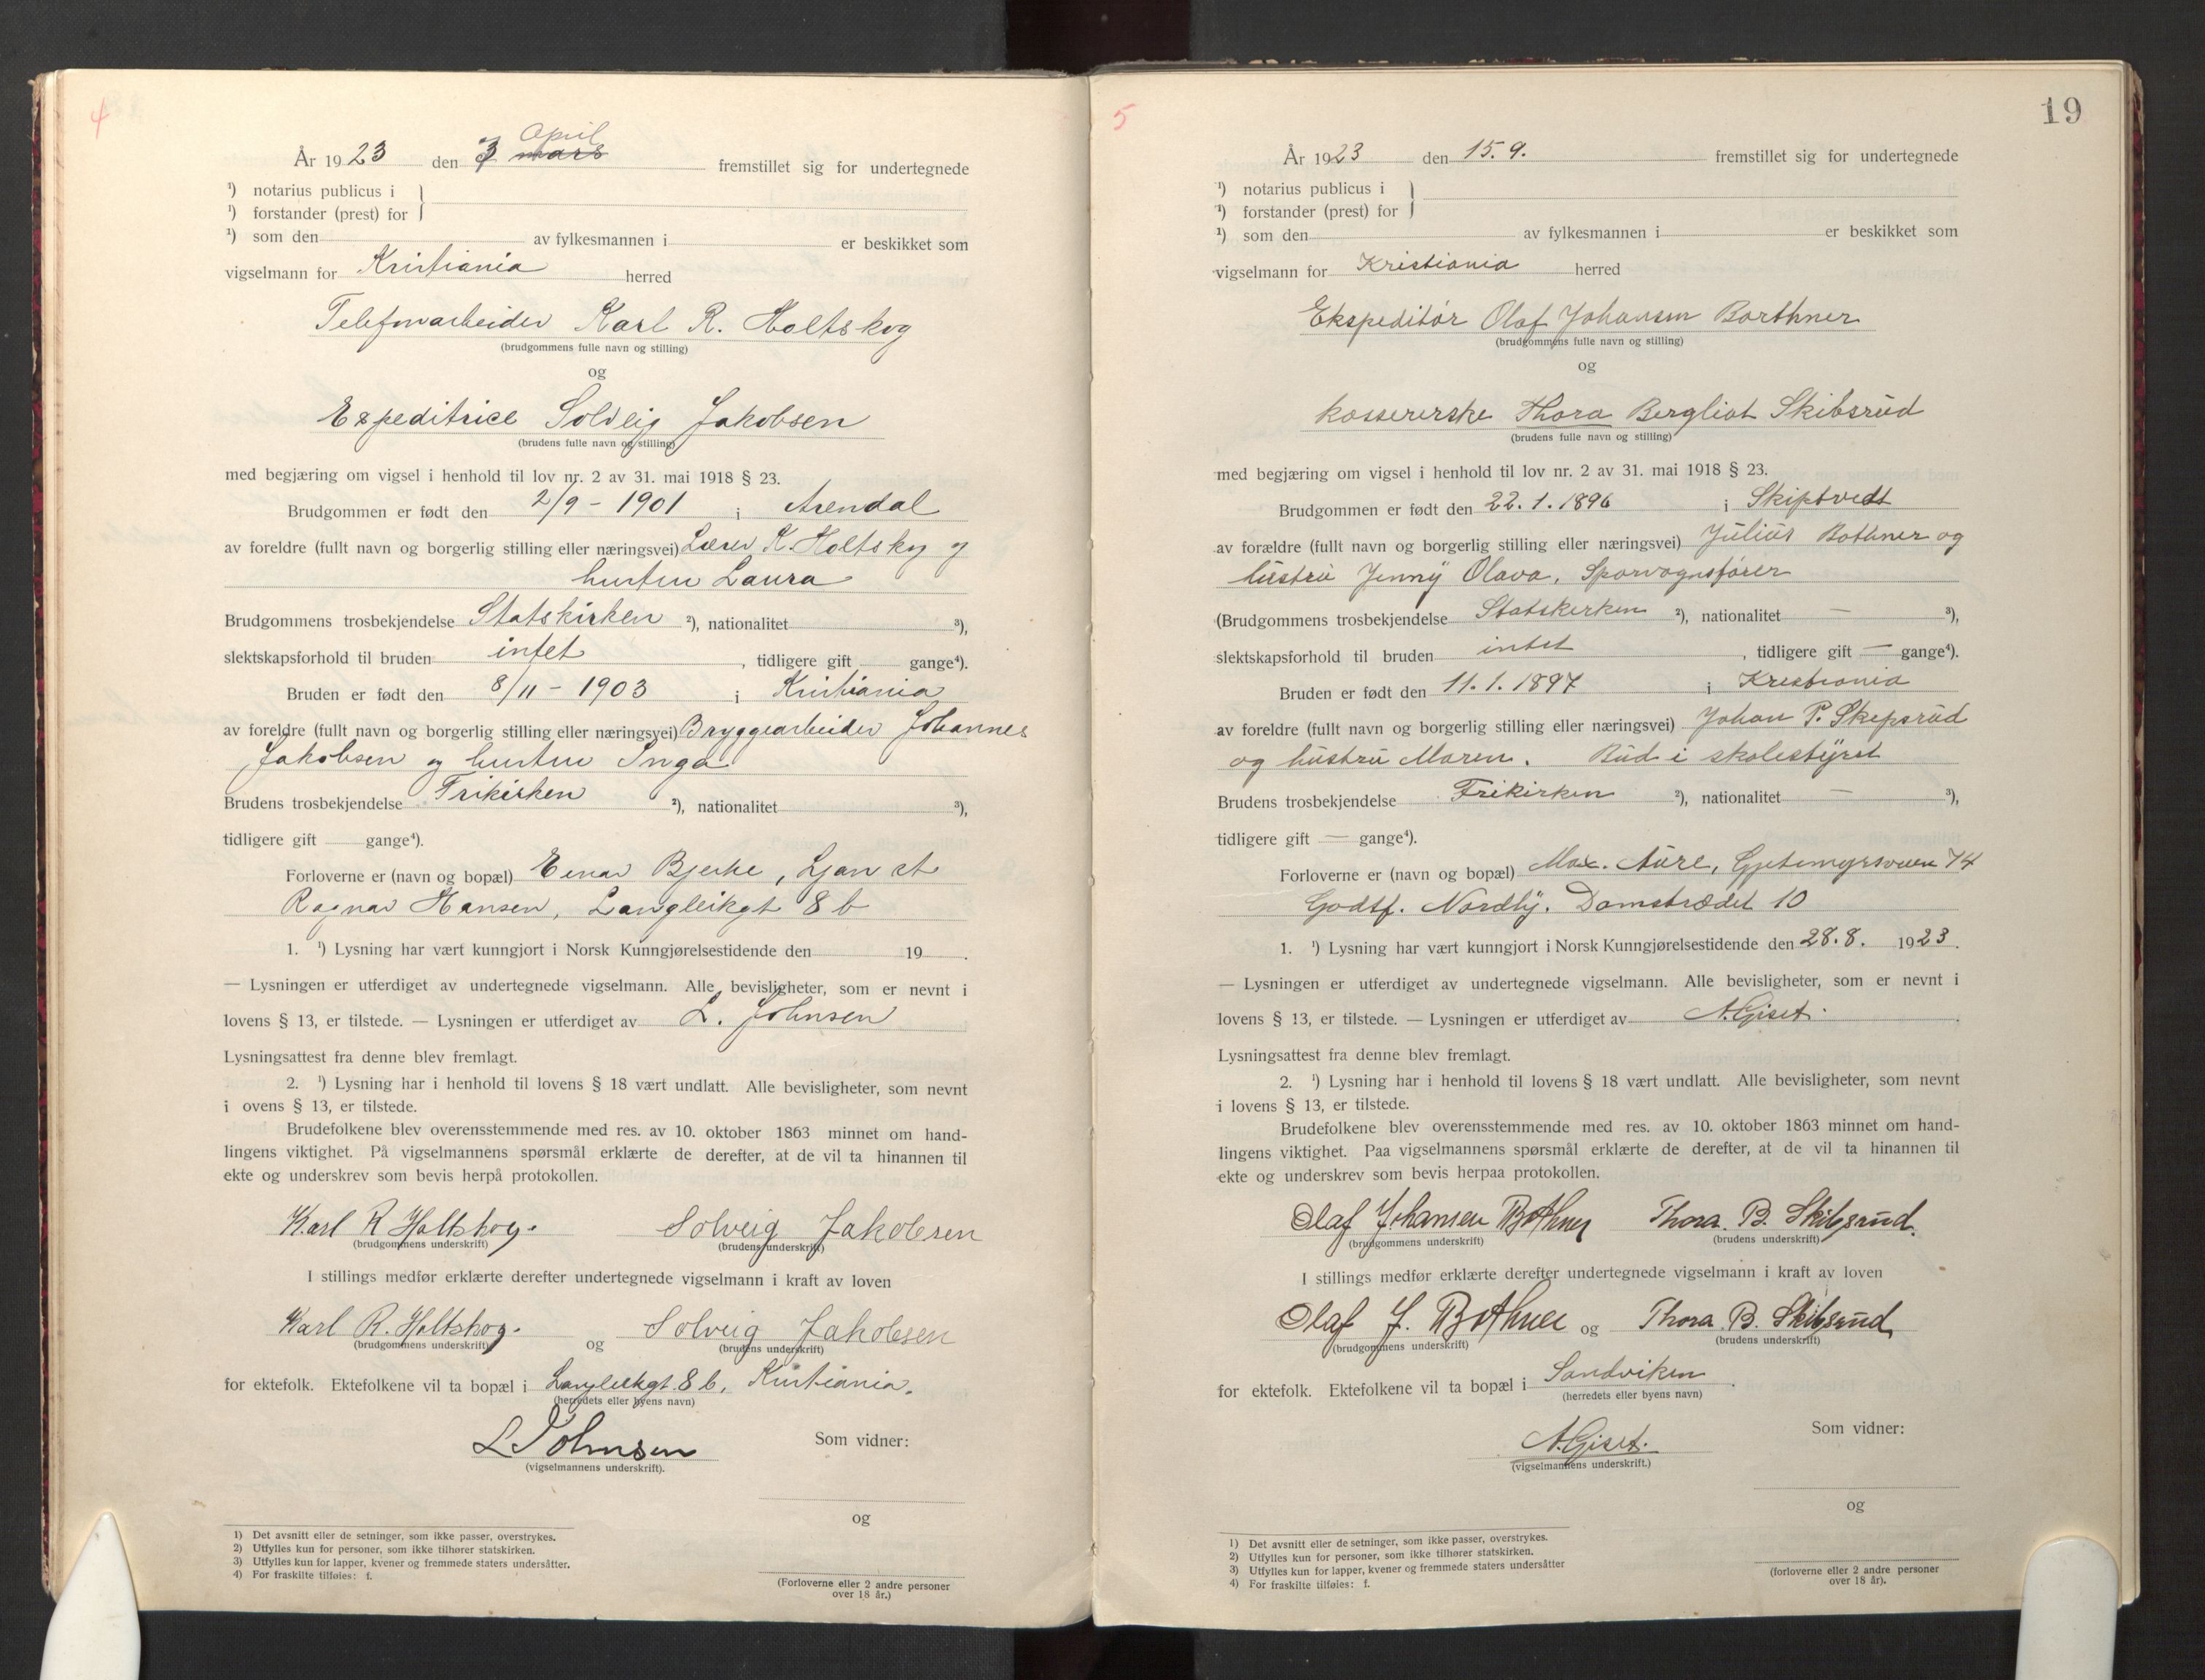 4
April
År 1923 den 3 mars fremstillet sig for undertegnede
¹) notarius publicus i
¹) forstander (prest) for
¹) som den av fylkesmannen i er beskikket som
vigselmann for Kristiania herred
Telefonarbeider Karl R. Holtskog
(brudgommens fulle navn og stilling)
og
Expeditrice Solveig Jakobsen
(brudens fulle navn og stilling)
med begjæring om vigsel i henhold til lov nr. 2 av 31. mai 1918 § 23.
Brudgommen er født den 2/9 - 1901 i Arendal
av foreldre (fullt navn og borgerlig stilling eller næringsvei) Lærer K. Holtskog og
hustru Laura
Brudgommens trosbekjendelse Statskirken ²), nationalitet ³),
slektskapsforhold til bruden intet, tidligere gift gange⁴).
Bruden er født den 8/11 - 1903 i Kristiania
av foreldre (fullt navn og borgerlig stilling eller næringsvei) Bryggearbeider Johannes
Jakobsen og hustru Inga
Brudens trosbekjendelse Frikirken ²), nationalitet ³),
tidligere gift gange⁴).
Forloverne er (navn og bopæl) Einar Bjerke, Ljan st
Ragnar Hansen, Langleikgt 8 b
1. ¹) Lysning har vært kunngjort i Norsk Kunngjørelsestidende den 19 .
— Lysningen er utferdiget av undertegnede vigselmann. Alle bevisligheter, som er nevnt i
lovens § 13, er tilstede. — Lysningen er utferdiget av L. Johnsen
Lysningsattest fra denne blev fremlagt.
2. ¹) Lysning har i henhold til lovens § 18 vært undlatt. Alle bevisligheter, som nevnt
i ovens § 13, er tilstede.
Brudefolkene blev overensstemmende med res. av 10. oktober 1863 minnet om hand-
lingens viktighet. På vigselmannens spørsmål erklærte de derefter, at de vil ta hinannen til
ekte og underskrev som bevis herpå protokollen.
Karl R Holtskog. Solveig Jakobsen
(brudgommens underskrift) (brudens underskrift)
I stillings medfør erklærte derefter undertegnede vigselmann i kraft av loven
Karl R. Holtskog. og Solveig Jakobsen
(brudgommens underskrift) (brudens underskrift)
for ektefolk. Ektefolkene vil ta bopæl i Langleikgt. 8 b, Kristiania.
(herredets eller byens navn)
L Johnsen Som vidner:
(vigselmannens underskrift).
og
1) Det avsnitt eller de setninger, som ikke passer, overstrykes.
2) Utfylles kun for personer, som ikke tilhører statskirken.
3) Utfylles kun for lapper, kvener og fremmede staters undersåtter.
4) For fraskilte tilføies: f.
(Forloverne eller 2 andre personer
over 18 år.)
5
19
År 1923 den 15.9. fremstillet sig for undertegnede
¹) notarius publicus i
¹) forstander (prest) for
¹) som den av fylkesmannen i er beskikket som
vigselmann for Kristiania herred
Ekspeditør Olaf Johansen Borthner
(brudgommens fulle navn og stilling)
og
kassererske Thora Bergliot Skibsrud
(brudens fulle navn og stilling)
med begjæring om vigsel i henhold til lov nr. 2 av 31. mai 1918 § 23.
Brudgommen er født den 22.1.1896 i Skiptvedt
av forældre (fullt navn og borgerlig stilling eller næringsvei) Julius Bothner og
hustru Jenny Olava, Sporvognsfører
(Brudgommens trosbekjendelse Statskerken ²), nationalitet — ³),
slektskapsforhold til bruden intet, tidligere gift — gange⁴).
Bruden er født den 11.1.1897 i Krestiania
av foreldre (fullt navn og borgerlig stilling eller næringsvei) Johan P. Skepsrud
og hustru Maren. Bud i skolestyret
Brudens trosbekjendelse Frikirken ²), nationalitet — ³),
tidligere gift — gange⁴).
Forloverne er (navn og bopæl) Max. Aure, Gjetemyrsveien 74
Godtf. Nordby. Damstrædet 10
1. ¹) Lysning har vært kunngjort i Norsk Kunngjørelsestidende den 28.8. 1923.
— Lysningen er utferdiget av undertegnede vigselmann. Alle bevisligheter, som er nevnt i
lovens § 13, er tilstede. — Lysningen er utferdiget av A. Giset.
Lysningsattest fra denne blev fremlagt.
2. ¹) Lysning har i henhold til lovens § 18 vært undlatt. Alle bevisligheter, som nevnt
i lovens § 13, er tilstede.
Brudefolkene blev overensstemmende med res. av 10. oktober 1863 minnet om hand-
lingens viktighet. Paa vigselmannens spørsmål erklærte de derefter, at de vil ta hinannen til
ekte og underskrev som bevis herpaa protokollen.
Olaf Johansen Bothner Thora. B. Skibsrud.
(brudgommens underskrift) (brudens underskrift)
I stillings medfør erklærte derefter undertegnede vigselmann i kraft av loven
Olaf J. Bothner og Thora. B. Skibsrud
(brudgommens underskrift) (brudens underskrift)
for ektefolk. Ektefolkene vil ta bopæl i Sandviken.
(herredets eller byens navn)
A. Giset. Som vidner:
(vigselmannens underskrift.)
og
1) Det avsnitt eller de setninger, som ikke passer, overstrykes.
2) Utfylles kun for personer, som ikke tilhører statskirken.
3) Utfylles kun for lapper, kvener og fremmede staters undersåtter
4) For fraskilte tilføies: f.
(forloverne eller 2 andre personer
over 18 år).